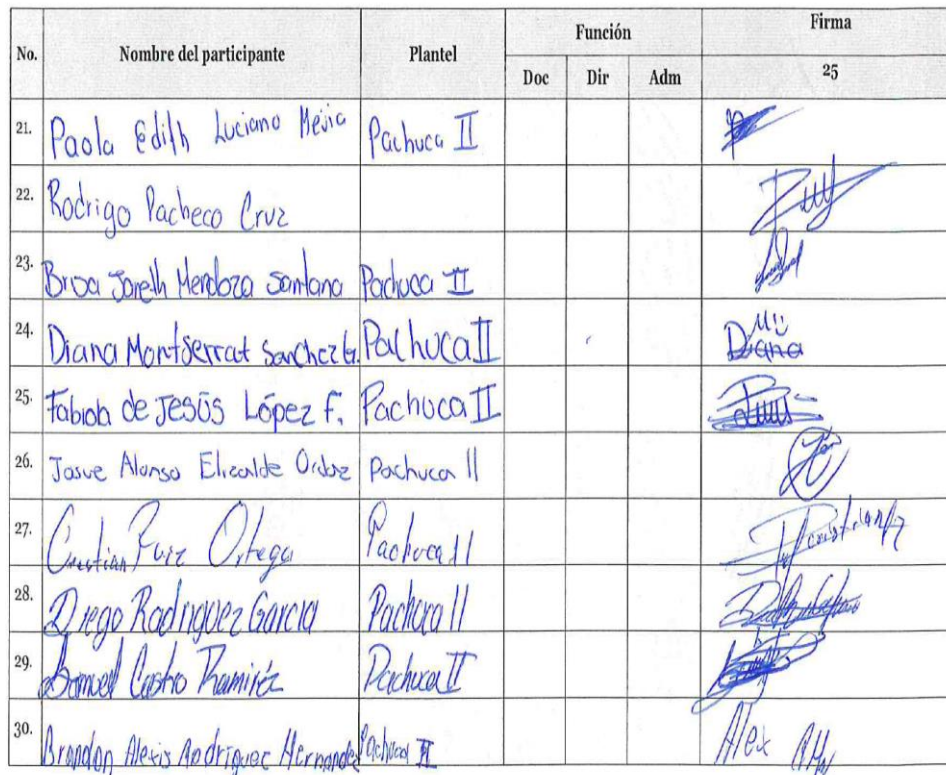 No. Nombre del participante Plantel Función Firma
Doc Dir Adm 25
21. Paola Edith Luciano Mejia Pachuca II
22. Rodrigo Pacheco Cruz
23. Janeth Mendoza Santana Pachuca II
24. Diana Montserrat Sanchez G. Pachuca II Diana
25. Fabiola de JESÚS López F. Pachuca II
26. Josue Alonso Elizalde Pachuca II
27. Cristian Ruiz Ortega Pachuca II Cristian
28. Diego Rodriguez Garcia Pachuca II
29. Samuel Castro Ramiréz Pachuca II
30. Brandon Alexis Rodriguez Hernandez Pachuca II Alex